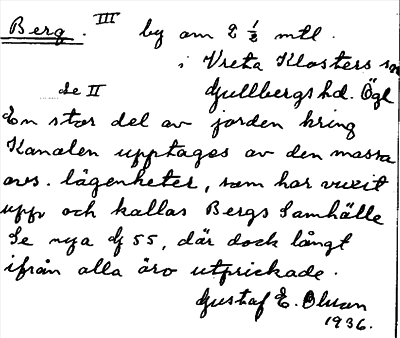 Berg. III by om 2 1/2 mtl.
i Vreta Klosters sn
Se II Gullbergs hd. Ögl
En stor del av jorden kring
Kanalen upptages av den massa
avs. lägenheter, som har vuxit
upp och kallas Bergs Samhälle
Se nya G 55, där dock långt
ifrån alla äro utprickade.
Gustaf E.
1936.